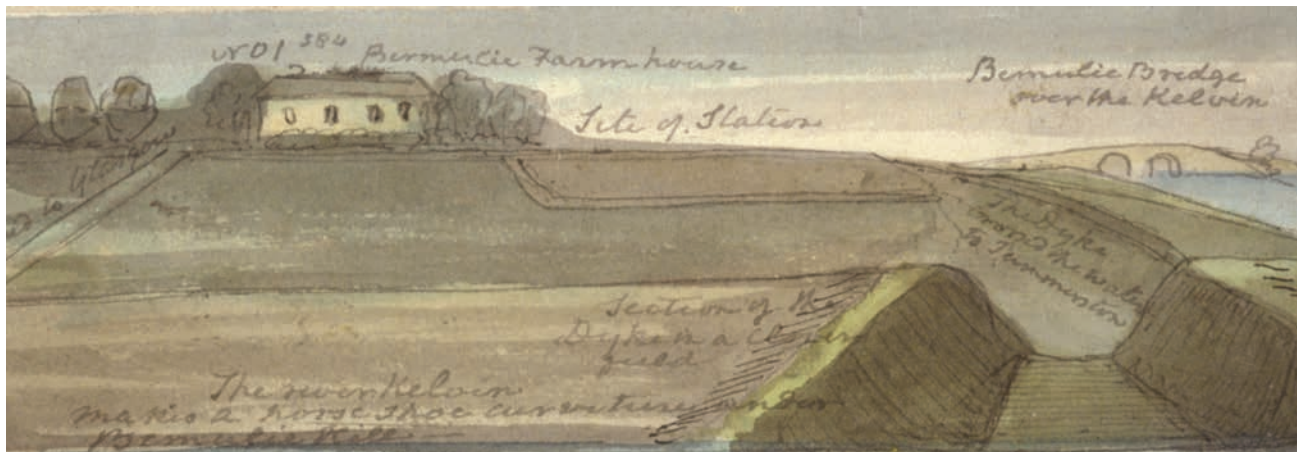 No 1 384 Bemulie Farm house
Bemulie Bridge
over the Kelvin
Site of Station
to Glasgow
The Dyke
cross'd the water
to Summerston
Section of the
Dyke in a
field
The river Kelvin
makes a horse shoe curvature under
Bemulie Hill